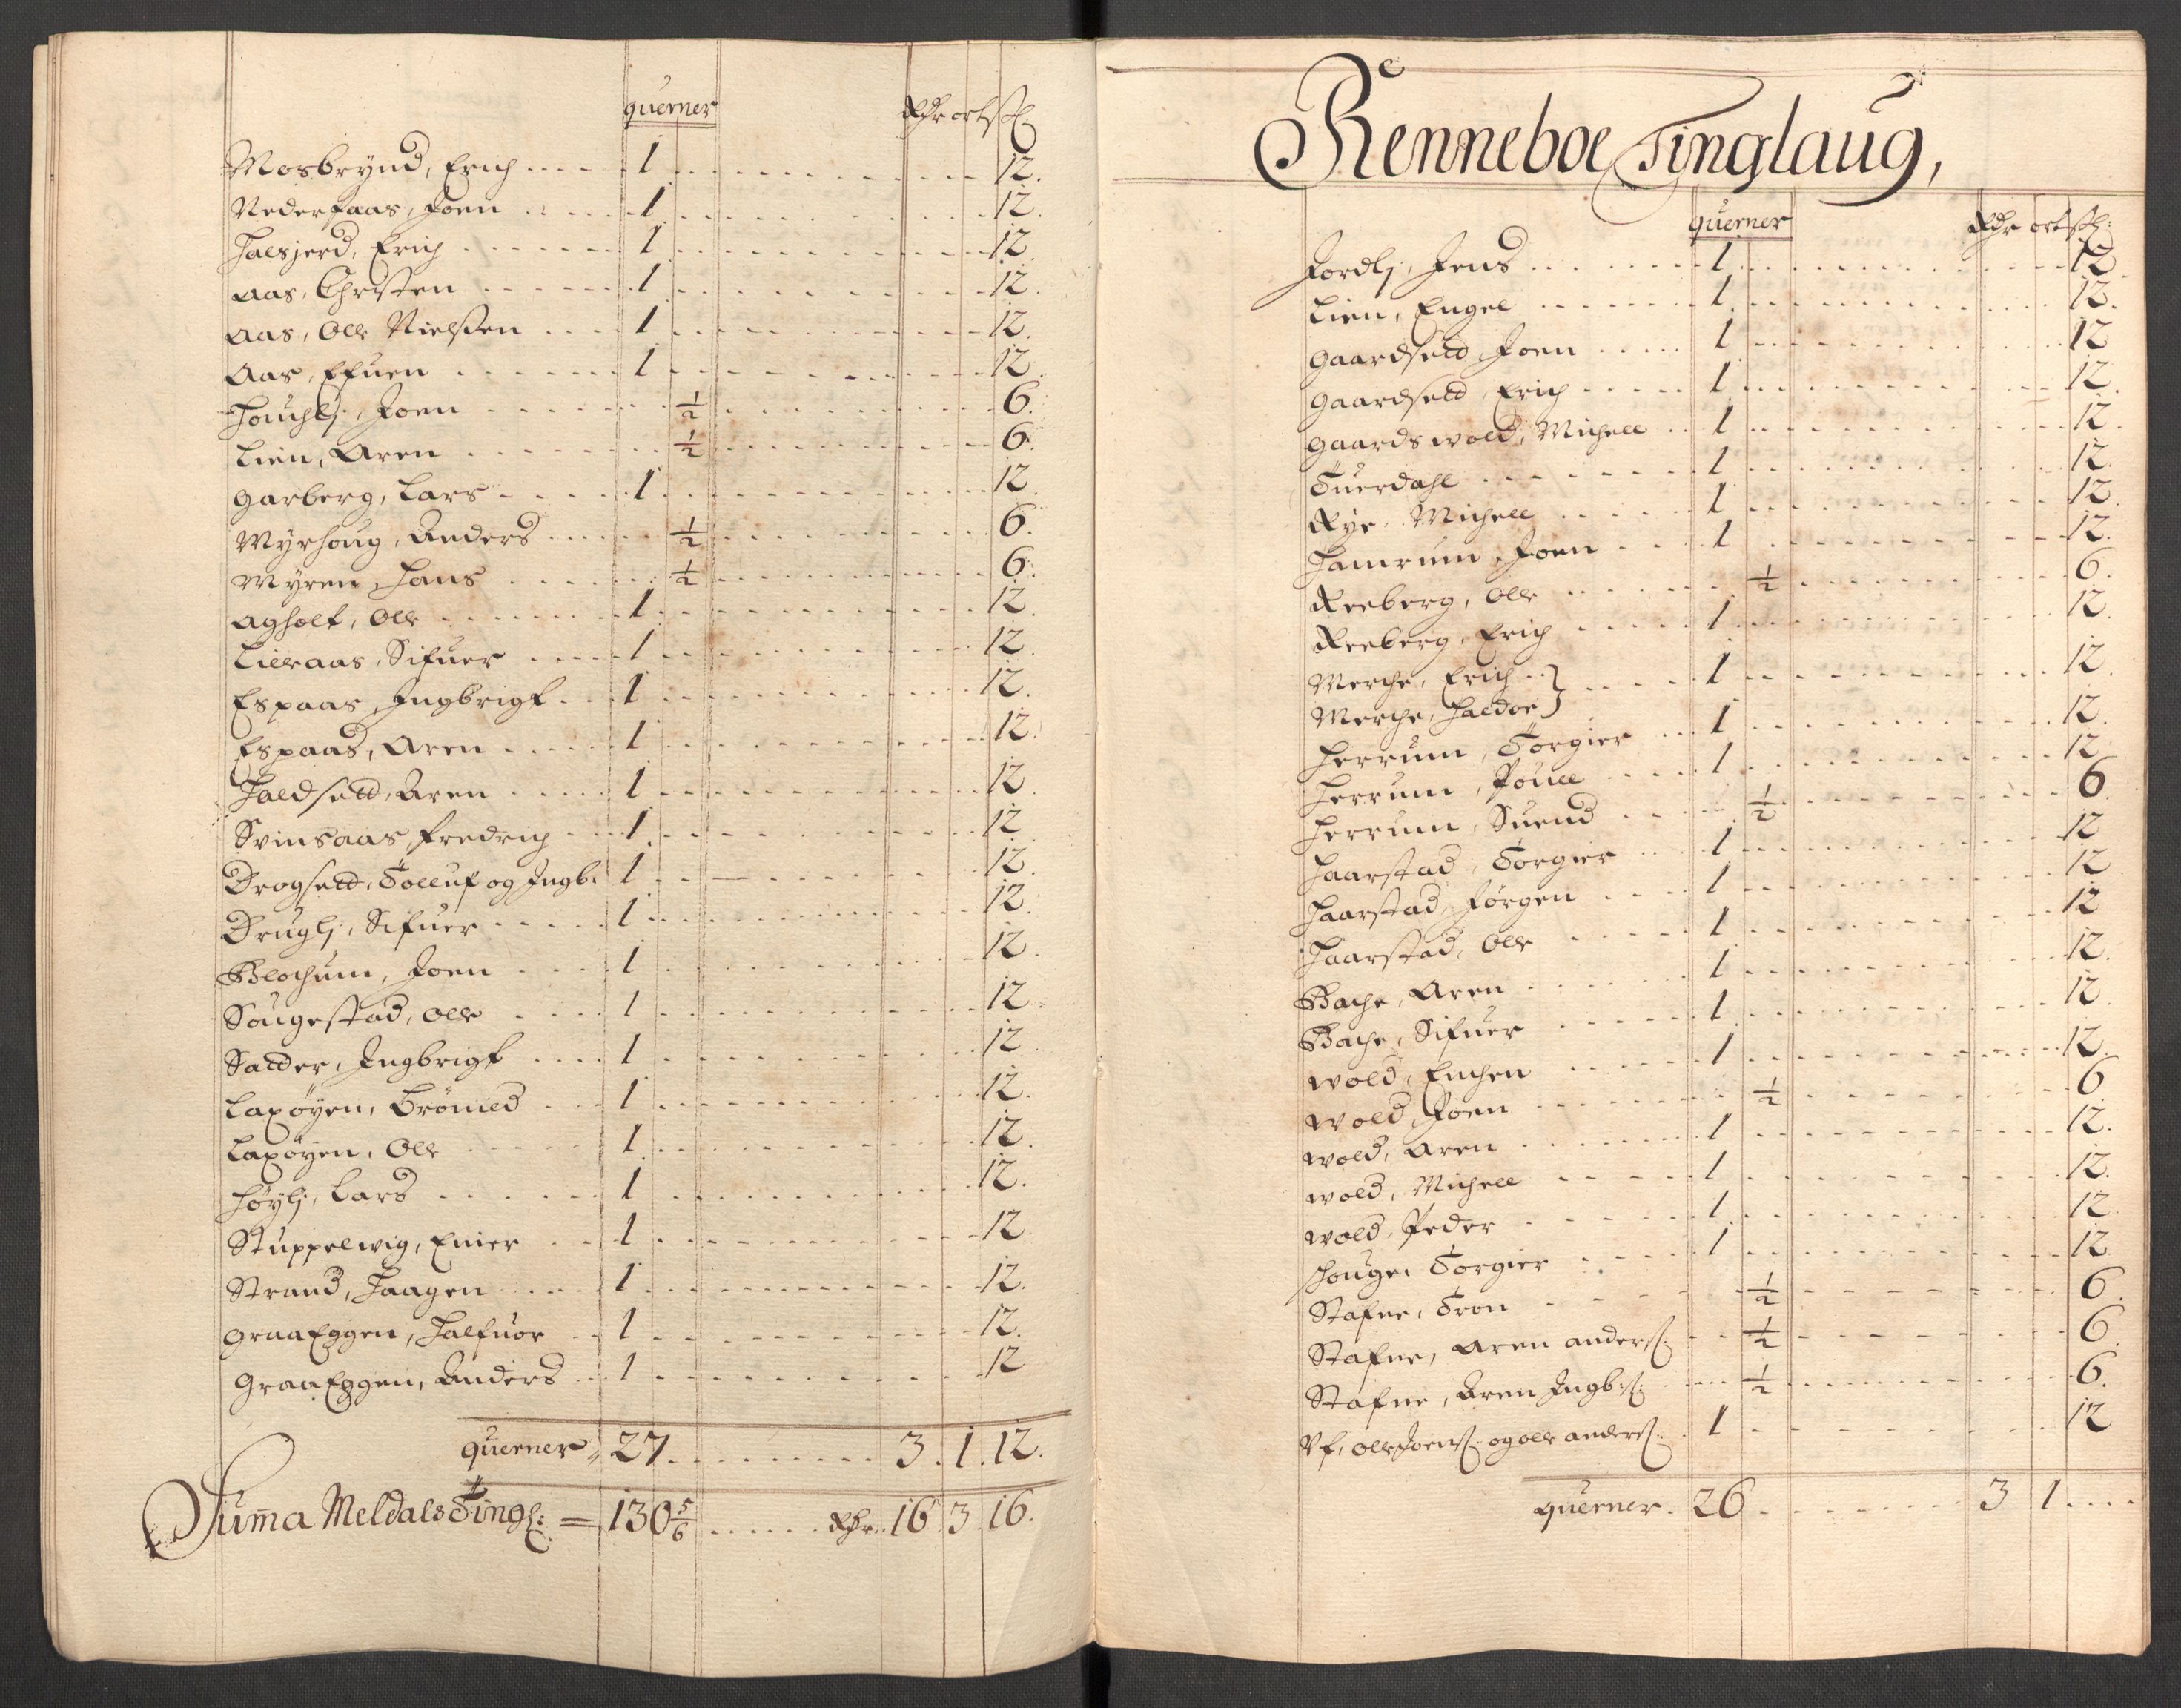 querner Rdr ort sk
Mosbrynd, Erich .... 1 ........ 12.
Nederfaas, Joen ..... 1 ........ 12.
Halsjerd, Erich ...... 1 ........ 12.
Aas, Chrsten ...... 1 ........ 12.
Aas, Olle Nielsen .... 1 ........ 12.
Aas, Efuen ...... 1 ........ 12.
Houchlj, Joen ...... 1/2 ........ 6.
Lien, Aren ....... 1/2 ........ 6.
Garberg, Lars ..... 1 ........ 12.
Myrhoug, Anders ..... 1/2 ........ 6.
Myren, Hans ...... 1/2 ........ 6.
Agholt, Olle ....... 1 ........ 12.
Lieraas, Sifuer .... 1 ........ 12.
Espaas, Ingbrigt ... 1 ........ 12.
Espaas, Aren ..... 1 ........ 12.
Haldsett, Aren ..... 1 ........ 12.
Svinsaas, Fredrich ... 1 ........ 12
Drogsett, Tolluf og Ingb: 1 ........ 12.
Druglj, Sifuer ..... 1 ........ 12.
Blochum, Joen .... 1 ........ 12
Sougestad, Olle .... 1 ........ 12.
Satter, Ingbrigt .... 1 ........ 12.
Laxøyen, Trønied ... 1 ........ 12.
Laxøyen, Olle ..... 1 ........ 12.
Høylj, Lars ...... 1 ........ 12.
Stuppelwig, Enier ... 1 ........ 12
Strand, Haagen .... 1 ........ 12.
GraaEggen, Halfuor .. 1 ........ 12.
GraaEggen, Anders .. 1 ........ 12
querner 27 ........ 3. 1. 12.
Suma Meldals Tingl: = 130 5/6 ...... Rdr. 16 3 16.
Renneboe Tinglaug,
querner Rdr ort sk:
Jordlj, Jens ....... 1 ........ 12
Lien, Engel ....... 1 ........ 12.
Gaardsett, Joen ..... 1 ........ 12
Gaardsett, Erich ..... 1 ........ 12.
Gaardswold, Michell .. 1 ........ 12.
Tuerdahl ....... 1 ........ 12.
Rye, Michell ..... 1 ........ 12.
Hamrum, Joen .... 1 ........ 12.
Reeberg, Olle ...... 1/2 ........ 6.
Reeberg, Erich ..... 1 ........ 12.
Merche, Erich .. } .... 1 ........ 12.
Merche, Haldoe }
Herrum, Torgier ... 1 ........ 12.
Herrum, Pouell .... 1 ........ 12
Herrum, Suend .... 1/2 ........ 6.
Haarstad, Torgier ... 1 ........ 12
Haarstad, Jørgen .... 1 ........ 12
Haarstad, Olle ..... 1 ........ 12
Bache, Aren ...... 1 ........ 12.
Bache, Sifuer ..... 1 ........ 12.
Wold, Enchen ..... 1 ........ 12.
Wold, Joen ....... 1/2 ........ 6
Wold, Aren ....... 1 ........ 12.
Wold, Michell ..... 1 ........ 12.
Wold, Peder ...... 1 ........ 12
Houge, Torgier .... 1 ........ 12.
Stafne, Tron ...... 1/2 ........ 6.
Stafne, Aren anders: .. 1/2 ........ 6.
Stafne, Aren Ingb:s: .. 1/2 ........ 6.
Vf, Olle Joens: og olle anders: . 1 ........ 12
querner. 26 ........ 3 1 ....